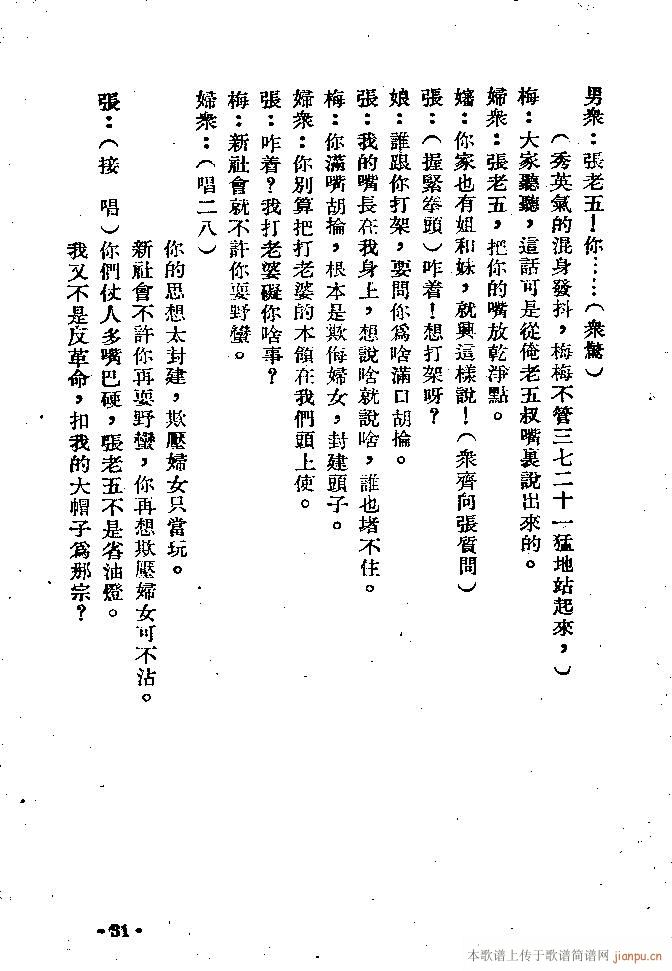 男衆：張老五！你……（衆驚）
（秀英氣的混身發抖，梅梅不管三七二十一猛地站起來，）
梅：大家聽聽，這話可是從俺老五叔嘴裏說出來的。
婦衆：張老五，把你的嘴放乾淨點。
嬸：你家也有姐和妹，就興這樣說！（衆齊向張質問）
張：（握緊拳頭）咋着！想打架呀？
娘：誰跟你打架，要問你爲啥滿口胡掄。
張：我的嘴長在我身上，想說啥就說啥，誰也堵不住。
梅：你滿嘴胡掄，根本是欺侮婦女，封建頭子。
婦衆：你別算把打老婆的本領在我們頭上使。
張：咋着？我打老婆礙你啥事？
梅：新社會就不許你耍野蠻。
婦衆：（唱二八）
你的思想太封建，欺壓婦女只當玩。
新社會不許你再耍野蠻，你再想欺壓婦女可不沾。
張：（接唱）你們仗人多嘴巴硬，張老五不是省油燈。
我又不是反革命，扣我的大帽子爲那宗？
·31·
本歌谱上传于歌谱简谱网
jianpu.cn